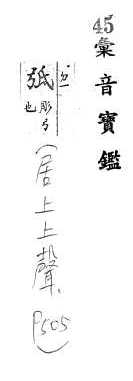 45彙音寶鑑
弤彫弓也
(居上上聲,P505)